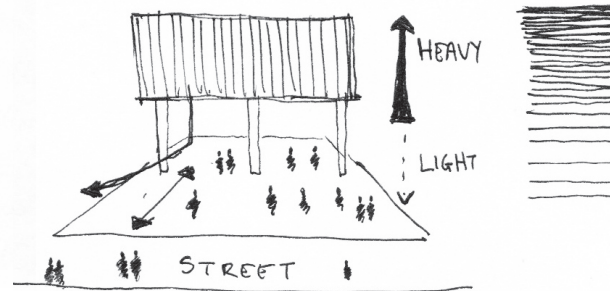 HEAVY
LIGHT
STREET